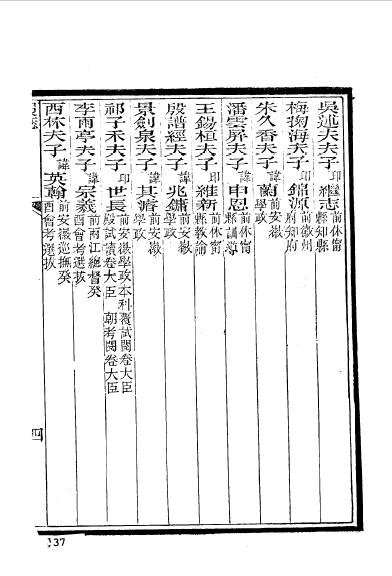 吳述夫夫子 印繼志 前休甯縣知縣
梅掬海夫子 印錦源 前徽州府知府
朱久香夫子 諱蘭 前安徽學政
潘雲屏夫子 諱申恩 前休甯縣訓導
王錫桓夫子 印維新 前休甯縣教諭
殷譜經夫子 諱兆鏞 前安徽學政
景劍泉夫子 諱其濬 前安徽學政
祁子禾夫子 印世長 前安徽學政本科覆試閱卷大臣殿試讀卷大臣 朝考閱卷大臣
李雨亭夫子 諱宗羲 前兩江總督癸酉會考選拔
西林夫子 諱英翰 前安徽巡撫癸酉會考選拔
四
137